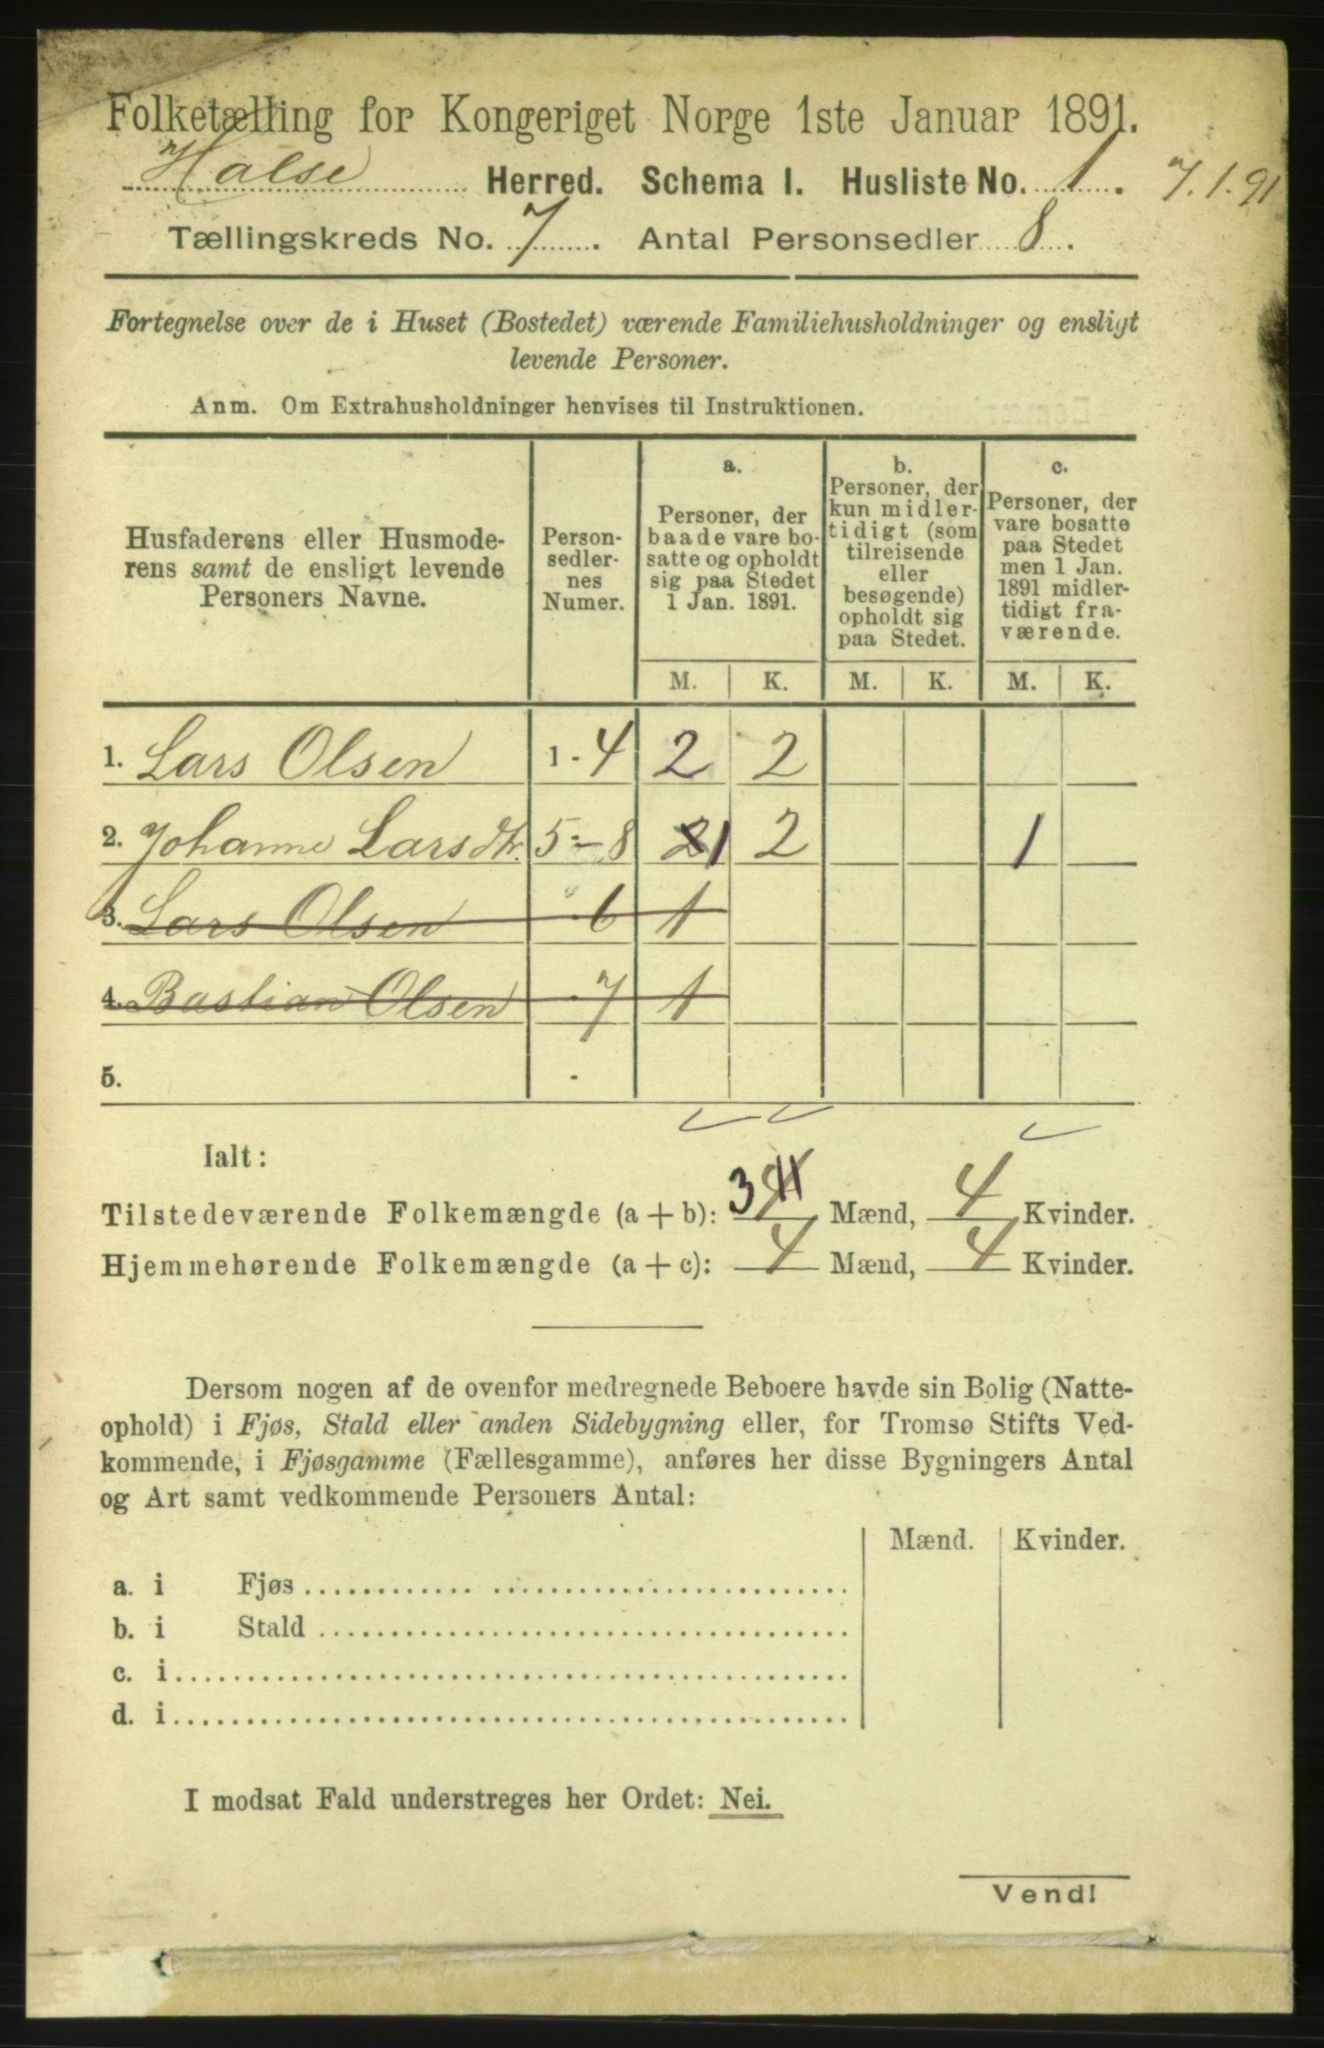 Folketælling for Kongeriget Norge 1ste Januar 1891.
Halse Herred. Schema I. Husliste No. 1. 7.1.91
Tællingskreds No. 7. Antal Personsedler 8.
Fortegnelse over de i Huset (Bostedet) værende Familiehusholdninger og ensligt
levende Personer.
Anm. Om Extrahusholdninger henvises til Instruktionen.
Husfaderens eller Husmode-
rens samt de ensligt levende
Personers Navne.
Person-
sedler-
nes
Numer.
a.
Personer, der
baade vare bo-
satte og opholdt
sig paa Stedet
1 Jan. 1891.
b.
Personer, der
kun midler-
tidigt (som
tilreisende
eller
besøgende)
opholdt sig
paa Stedet.
c.
Personer, der
vare bosatte
paa Stedet
men 1 Jan.
1891 midler-
tidigt fra-
værende.
M. K. M. K. M. K.
1. Lars Olsen 1 - 4 2 2
2. Johanne Larsdtr. 5 - 8 2 1 2 1
3. Lars Olsen 6 1
4. Bastian Olsen 7 1
5.
Ialt:
Tilstedeværende Folkemængde (a + b): 3 4 Mænd, 4 Kvinder.
Hjemmehørende Folkemængde (a + c): 4 Mænd, 4 Kvinder.
Dersom nogen af de ovenfor medregnede Beboere havde sin Bolig (Natte-
ophold) i Fjøs, Stald eller anden Sidebygning eller, for Tromsø Stifts Ved-
kommende, i Fjøsgamme (Fællesgamme), anføres her disse Bygningers Antal
og Art samt vedkommende Personers Antal:
Mænd. Kvinder.
a. i Fjøs
b. i Stald
c. i
d. i
I modsat Fald understreges her Ordet: Nei.
Vend!